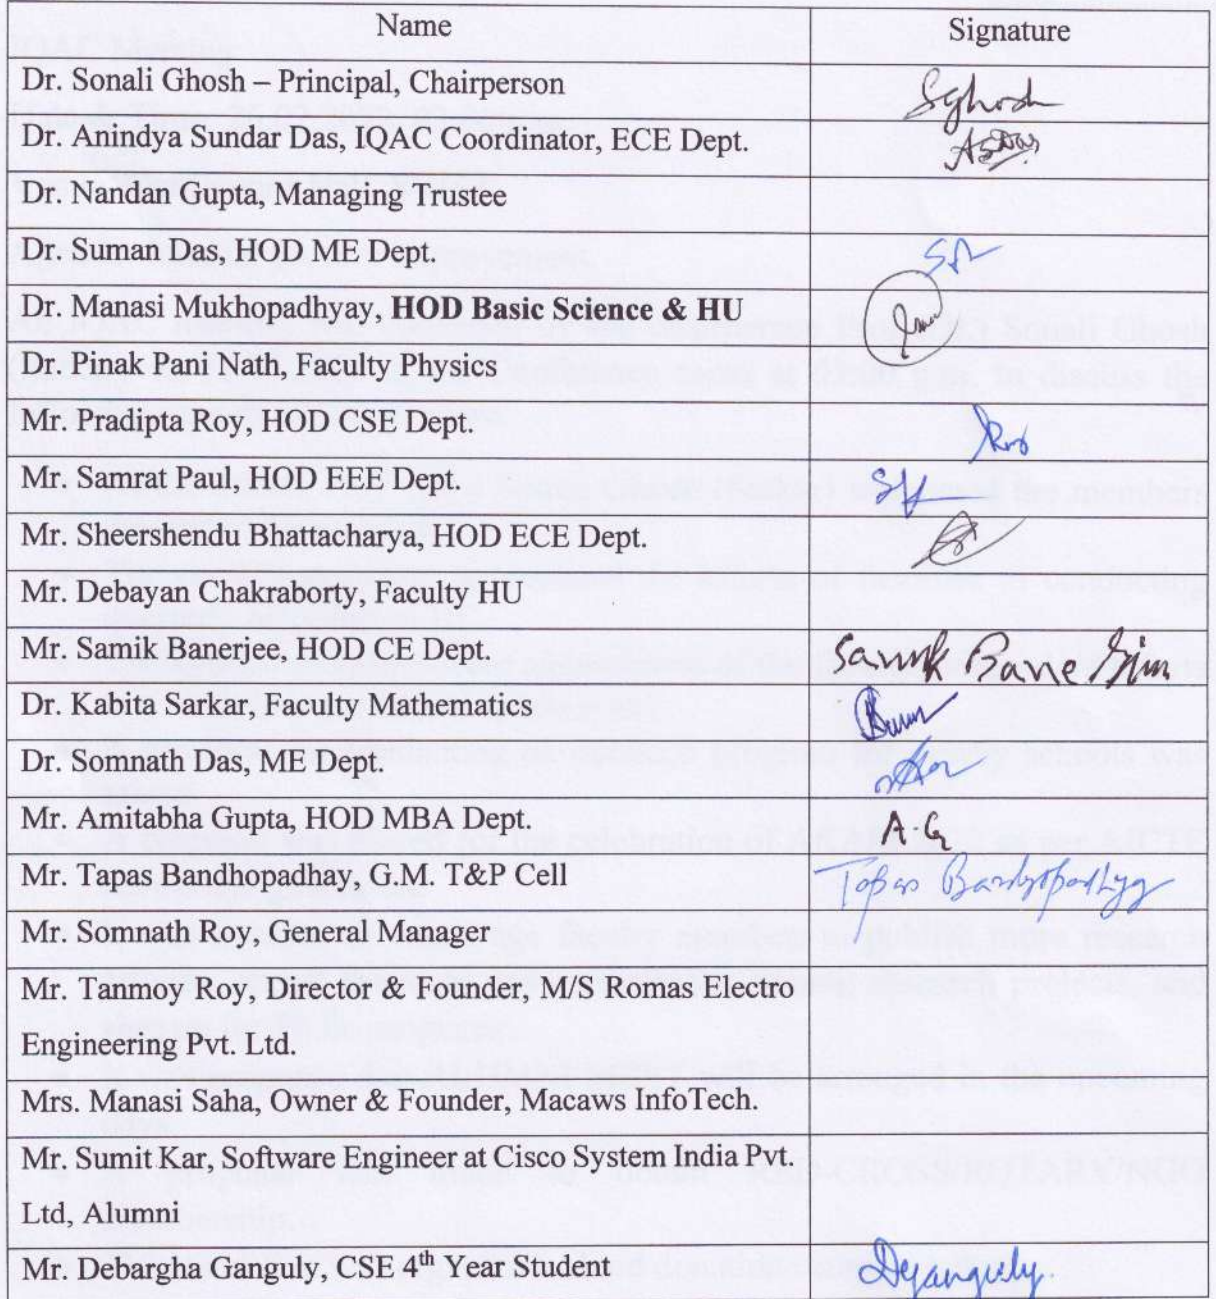 Name Signature
Dr. Sonali Ghosh – Principal, Chairperson SGhosh
Dr. Anindya Sundar Das, IQAC Coordinator, ECE Dept. ASDas
Dr. Nandan Gupta, Managing Trustee
Dr. Suman Das, HOD ME Dept.
Dr. Manasi Mukhopadhyay, HOD Basic Science & HU
Dr. Pinak Pani Nath, Faculty Physics
Mr. Pradipta Roy, HOD CSE Dept.
Mr. Samrat Paul, HOD EEE Dept.
Mr. Sheershendu Bhattacharya, HOD ECE Dept.
Mr. Debayan Chakraborty, Faculty HU
Mr. Samik Banerjee, HOD CE Dept. Samik Banerjee
Dr. Kabita Sarkar, Faculty Mathematics
Dr. Somnath Das, ME Dept.
Mr. Amitabha Gupta, HOD MBA Dept. A G
Mr. Tapas Bandhopadhay, G.M. T&P Cell Tapas Bandyopadhyay
Mr. Somnath Roy, General Manager
Mr. Tanmoy Roy, Director & Founder, M/S Romas Electro
Engineering Pvt. Ltd.
Mrs. Manasi Saha, Owner & Founder, Macaws InfoTech.
Mr. Sumit Kar, Software Engineer at Cisco System India Pvt.
Ltd, Alumni
Mr. Debargha Ganguly, CSE 4th Year Student DGanguly